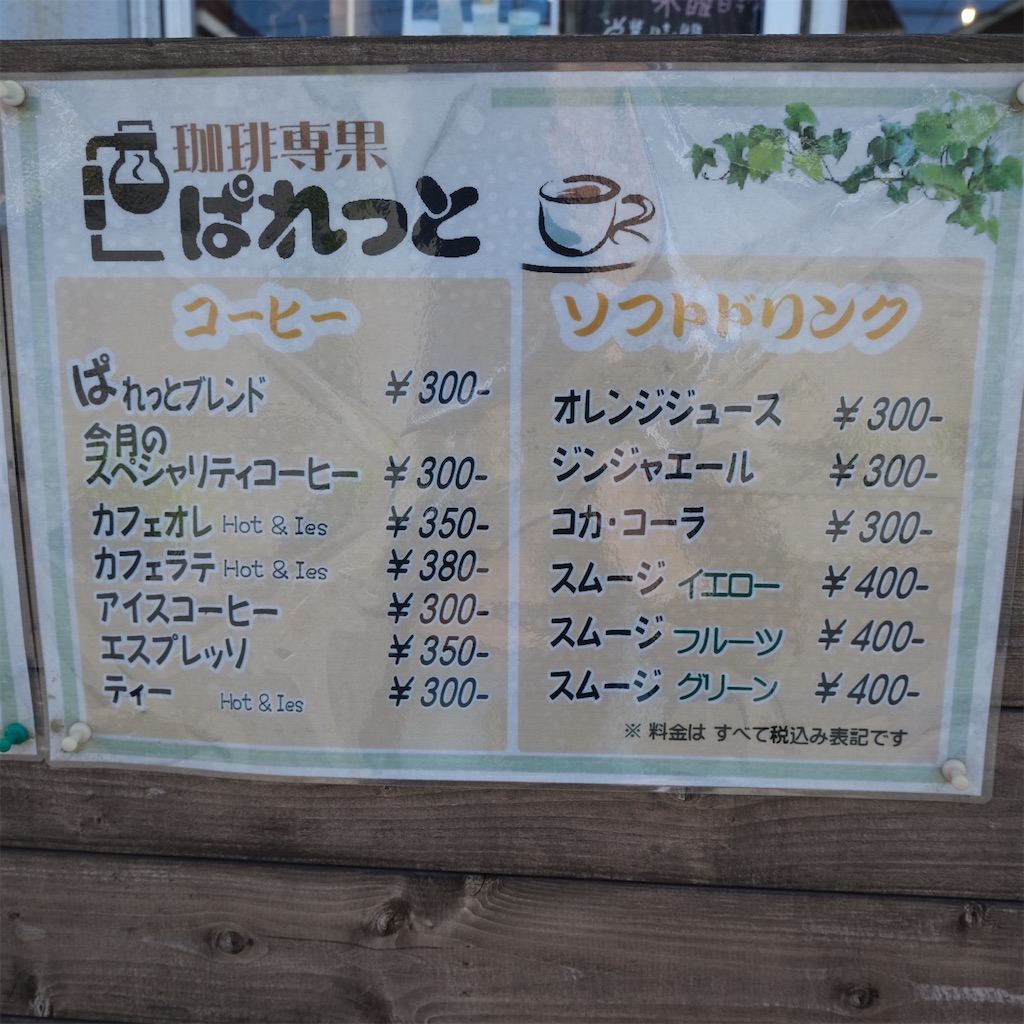 珈琲専果
ぱれっと
コーヒー
ぱれっとブレンド ¥300-
今月の
スペシャリティコーヒー ¥300-
カフェオレ Hot & Ies ¥350-
カフェラテ Hot & Ies ¥380-
アイスコーヒー ¥300-
エスプレッソ ¥350-
ティー Hot & Ies ¥300-
ソフトドリンク
オレンジジュース ¥300-
ジンジャエール ¥300-
コカ・コーラ ¥300-
スムージ イエロー ¥400-
スムージ フルーツ ¥400-
スムージ グリーン ¥400-
※ 料金は すべて税込み表記です